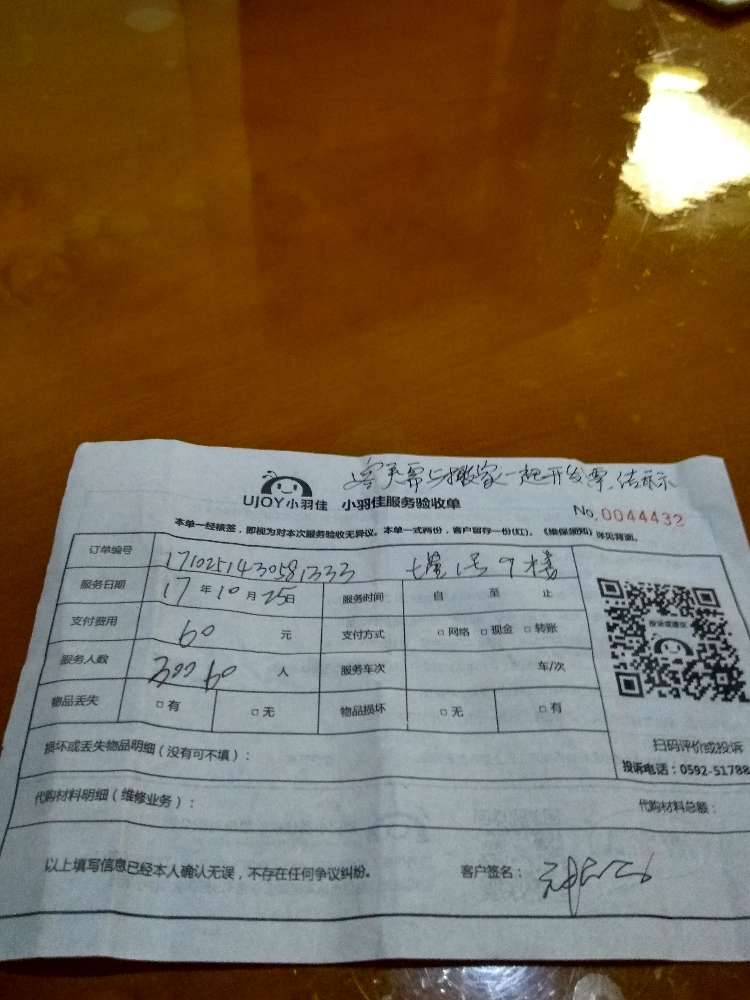 客户需与搬家一起开发票,
UJOY小羽佳 小羽佳服务验收单
No. 0044432
本单一经核签，即视为对本次服务验收无异议。本单一式两份，客户留存一份(红)。《维保细则》详见背面。
订单编号 1710251430581333 1号9楼
服务日期 17 年 10 月 25 日 服务时间 自 至 止
支付费用 60 元 支付方式 □ 网络 □ 现金 □ 转账
服务人数 300 60 人 服务车次 车/次
物品丢失 □ 有 □ 无 物品损坏 □ 无 □ 有
扫码评价或投诉
损坏或丢失物品明细（没有可不填）：
投诉电话：0592-51788
代购材料明细（维修业务）： 代购材料总额：
以上填写信息已经本人确认无误，不存在任何争议纠纷。 客户签名：